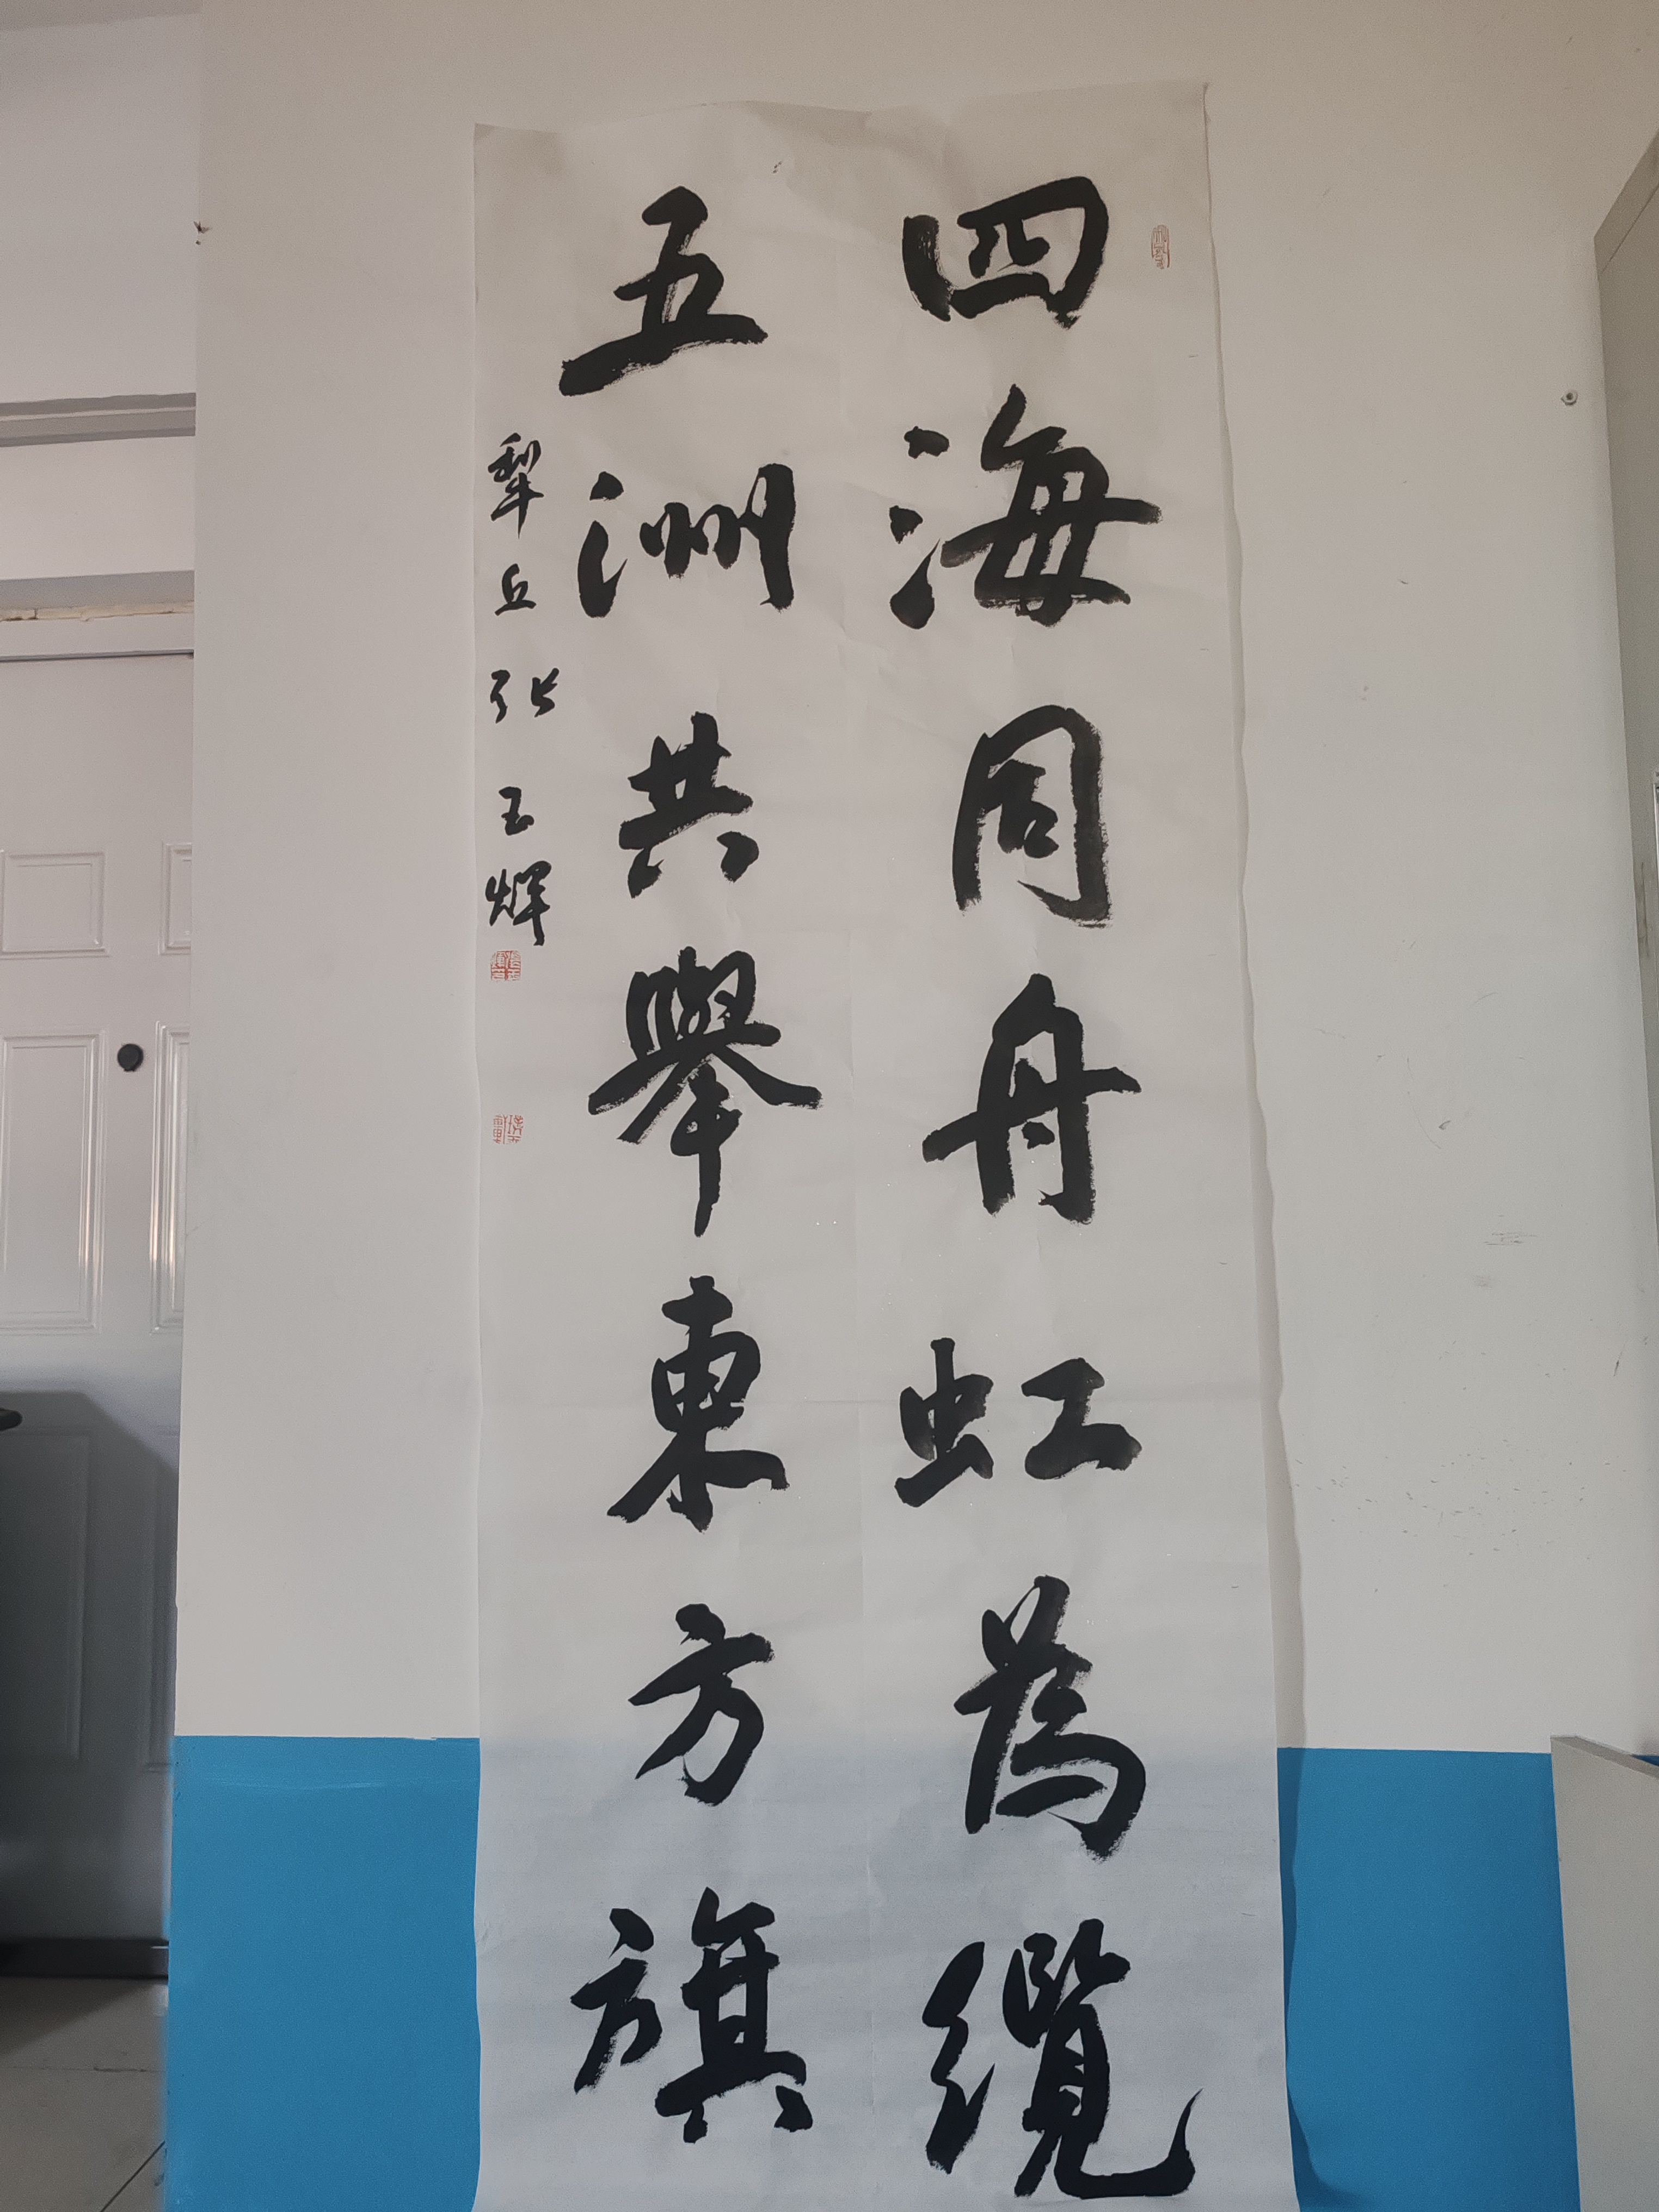 四海同舟虹為纜
五洲共舉東方旗
犁丘張玉輝